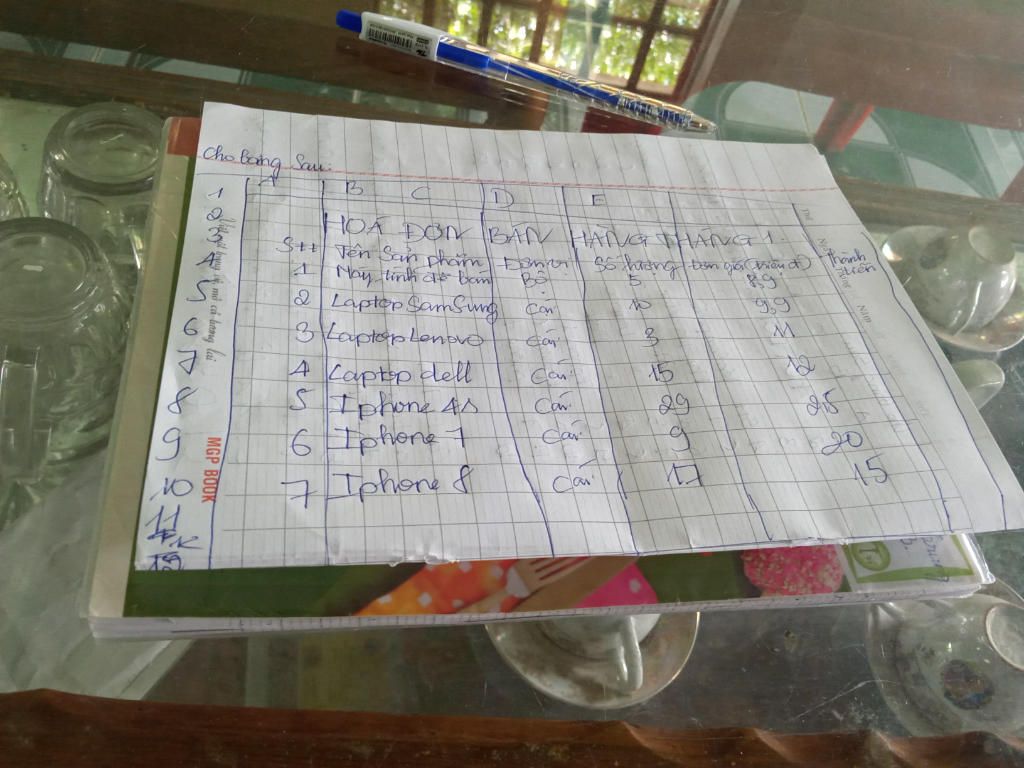 Cho bảng sau:
A B C D E
1
2 HOÁ ĐƠN BÁN HÀNG THÁNG 1.
3 Stt Tên Sản phẩm Đơn vị Số lượng Đơn giá (triệu đ) thành tiền
4 1 Máy tính để bàn Bộ 5 8,9
5 2 Laptop SamSung Cái 10 9,9
6 3 Laptop Lenovo Cái 3 11
7 4 Laptop dell Cái 15 12
8 5 Iphone 4s Cái 29 25
9 6 Iphone 7 Cái 9 20
10 7 Iphone 8 Cái 17 15
11
12
MGP BOOK
Thứ Ngày Tháng Năm